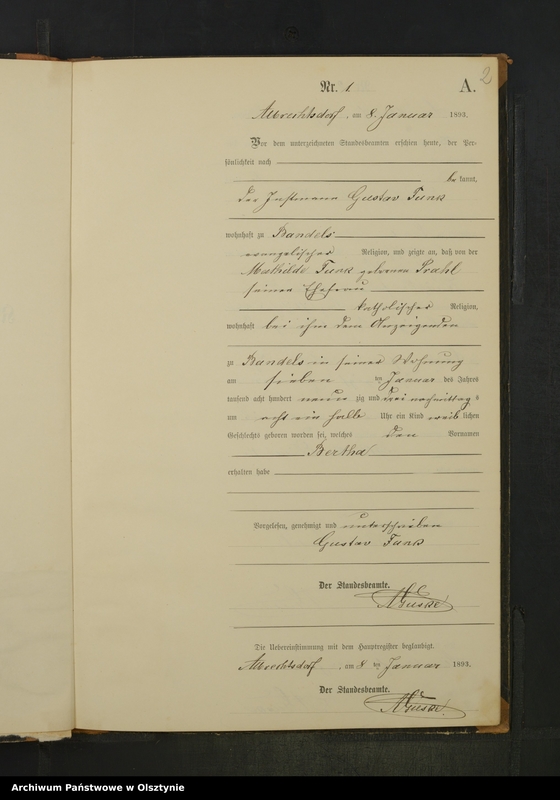 2
Nr. 1 A.
Albrechtsdorf, am 8. Januar 1893.
Vor dem unterzeichneten Standesbeamten erschien heute, der Per-
sönlichkeit nach
be kannt,
der Instmann Gustav Funk
wohnhaft zu Bandels
evangelischer Religion, und zeigte an, daß von der
Mathilde Funk geborenen Prahl
seiner Ehefrau
katholischer Religion,
wohnhaft bei ihm dem Anzeigenden
zu Bandels in seiner Wohnung
am sieben ten Januar des Jahres
tausend acht hundert neun zig und drei nachmittag s
um acht ein halb Uhr ein Kind weib lichen
Geschlechts geboren worden sei, welches den Vornamen
Bertha
erhalten habe
Vorgelesen, genehmigt und unterschrieben
Gustav Funk
Der Standesbeamte.
Die Uebereinstimmung mit dem Hauptregister beglaubigt.
Albrechtsdorf, am 8 ten Januar 1893.
Der Standesbeamte.
Archiwum Państwowe w Olsztynie